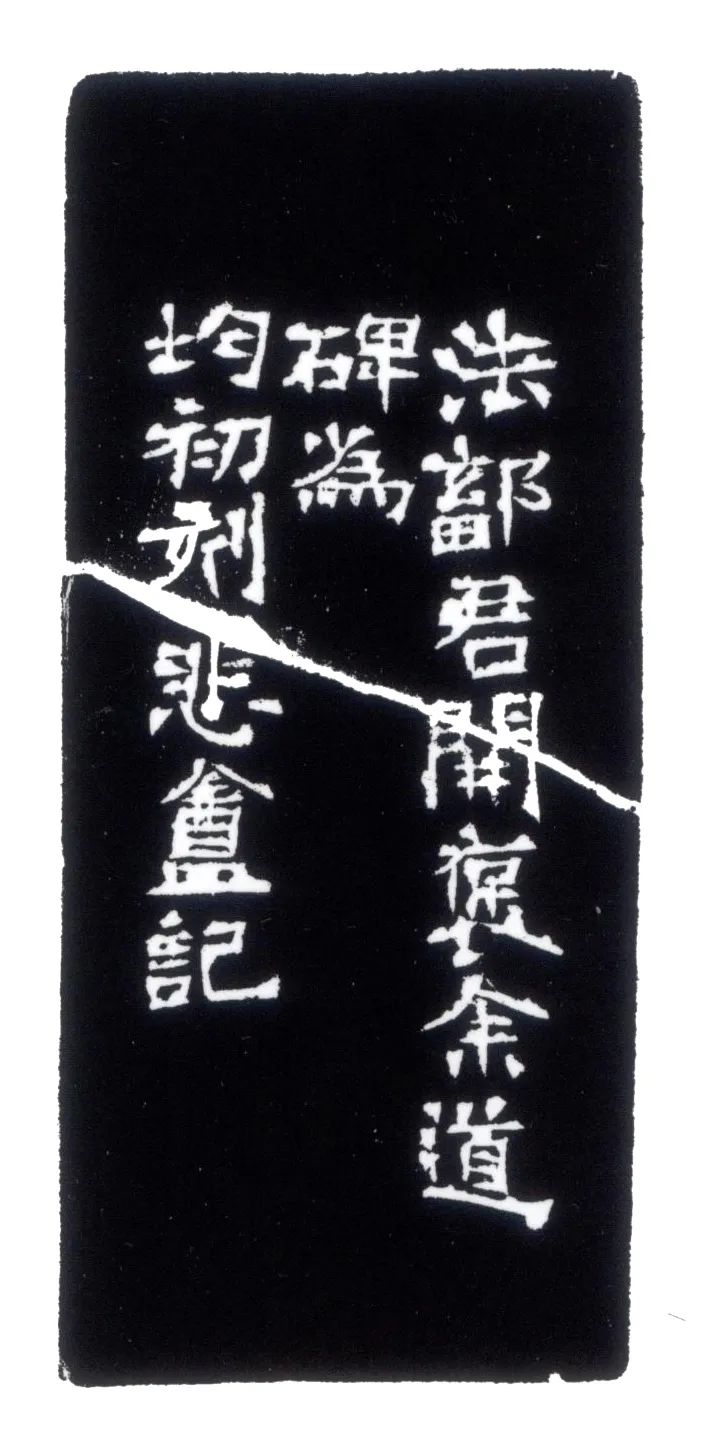 法鄐君開褒余道
碑為
均初刻悲盦記